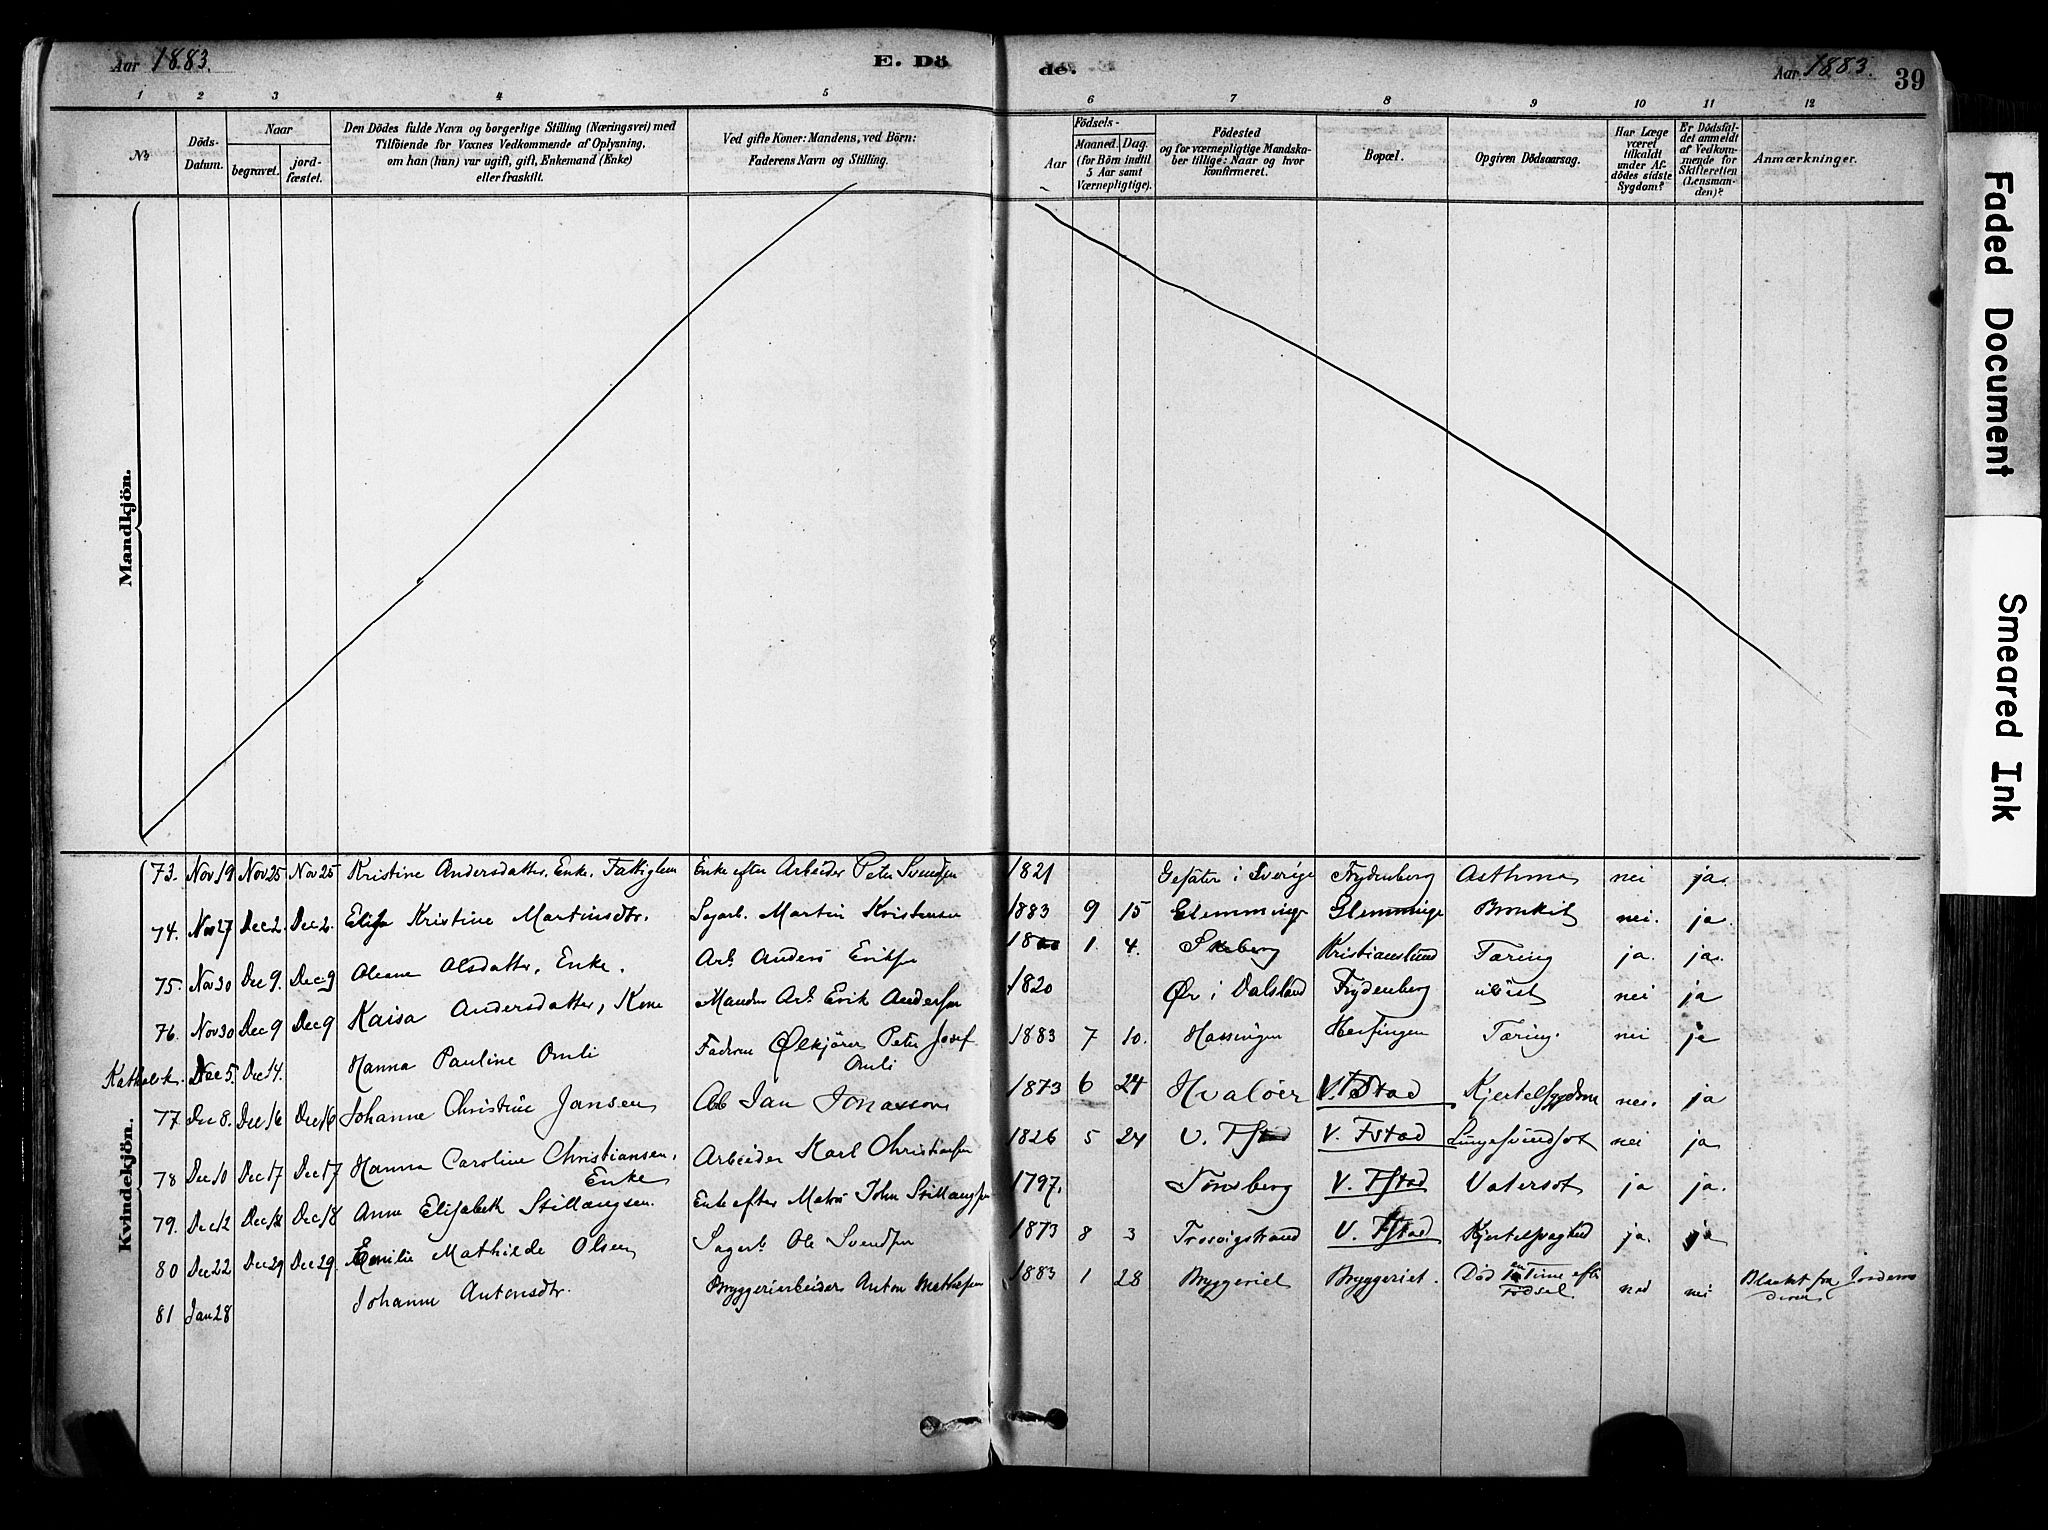 Aar 1883.
E. Dö
de.
Aar 1883.
39
1 2 3 4 5 6 7 8 9 10 11 12
No
Döds-
Datum.
Naar
begravet.
jord-
fæstet.
Den Dödes fulde Navn og borgerlige Stilling (Næringsvei) med
Tilföiende for Voxnes Vedkommende af Oplysning,
om han (hun) var ugift, gift, Enkemand (Enke)
eller fraskilt.
Ved gifte Koner: Mandens, ved Börn:
Faderens Navn og Stilling.
Födsels-
Aar
Maaned. Dag.
(for Börn indtil
5 Aar samt
Værnepligtige).
Födested
og for værnepligtige Mandska-
ber tillige: Naar og hvor
konfirmeret.
Bopæl.
Opgiven Dödsaarsag.
Har Læge
været
tilkaldt
under Af-
dödes sidste
Sygdom?
Er Dödsfal-
det anmeldt
af Vedkom-
mende for
Skifteretten
(Lensman-
den)?
Anmærkninger.
Mandkjön.
Kvindekjön.
73. Nov 19 Nov 25 Nov 25 Kristine Andersdatter, Enke, Fattiglem Enke efter Arbeider Peter Svendsen 1821 i Sverige Frydenberg Asthma nei ja.
74. Nov 27 Dec 2. Dec 2. Elise Kristine Martinsdtr. Sagarb. Martin Kristensen 1883 9 15 Glemminge Glemminge Bronkit nei. ja.
75. Nov 30 Dec 9. Dec 9 Oleane Olsdatter, Enke. Arb. Anders Eriksen 1. 4. Skeberg Kristianslund Tæring ja. ja.
76. Nov 30 Dec 9 Dec 9 Kaisa Andersdatter, Kone Manden Arb. Erik Andersen 1820 Ör i Dalsland Frydenberg nei ja
Katholsk. Dec 5. Dec 14. Hanna Pauline Omli Faderen Ölkjörer Peter Josef Omli 1883 7 10. Hassingen Hassingen Tæring. nei ja
77 Dec 8. Dec 16 Dec 16 Johanne Christine Jansen Arb Jan Jonasson 1873 6 24 Hvalöer V. Fstad Kjertelsygdom nei. ja
78 Dec 10 Dec 17 Dec 17 Hanna Caroline Christiansen, Enke Arbeider Karl Christiansen 1826 5 24 V. Fstad V. Fstad Lungesvindsot nei ja
79. Dec 12 Dec 18 Dec 18 Anne Elisabeth Stillaugsen. Enke efter Matros John Stillaugsen 1797. Tönsberg V. Fstad Vatersot ja ja.
80 Dec 22 Dec 29 Dec 29. Emilie Mathilde Olsen Sagarb. Ole Svendsen 1873 8 3 Trosvigstrand V. Fstad Kjertelsvaghed ja. ja
81 Jan 28 Johanne Antonsdtr. Bryggeriarbeider Anton Mathisen 1883 1 28 Bryggeriet Bryggeriet. Död en Time efter Födsel nei Jordemoderen
Faded Document
Smeared Ink